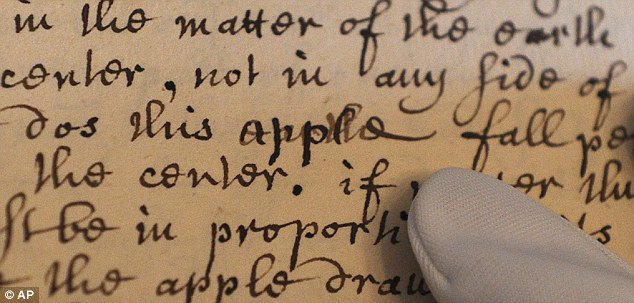 in the matter of the earth
center, not in any side of
dos this apple fall pe
the center. if
be in proporti
the apple draw
© AP